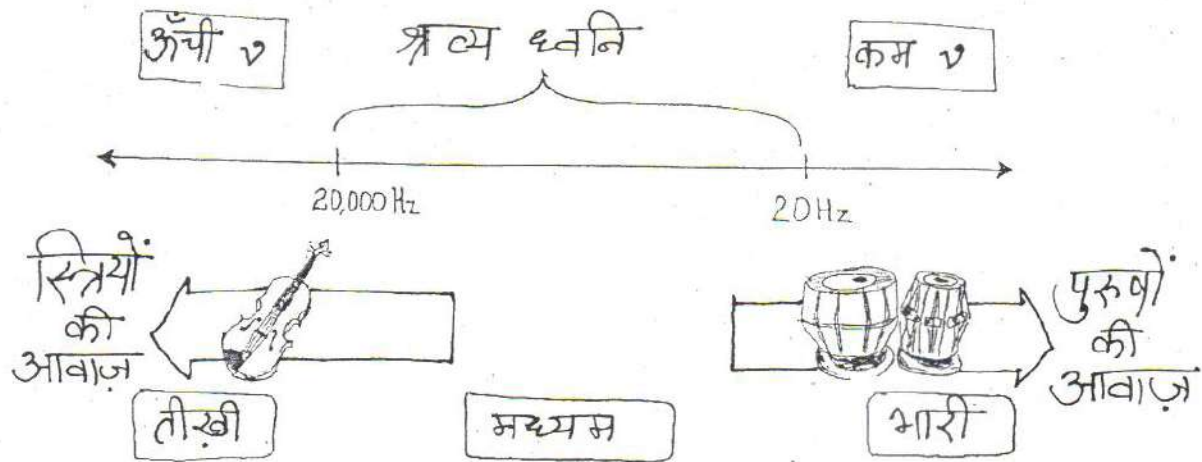 ऊँची ν
श्रव्य ध्वनि
कम ν
20,000 Hz
20 Hz
स्त्रियों
की
आवाज़
पुरुषों
की
आवाज़
तीख़ी
मध्यम
भारी